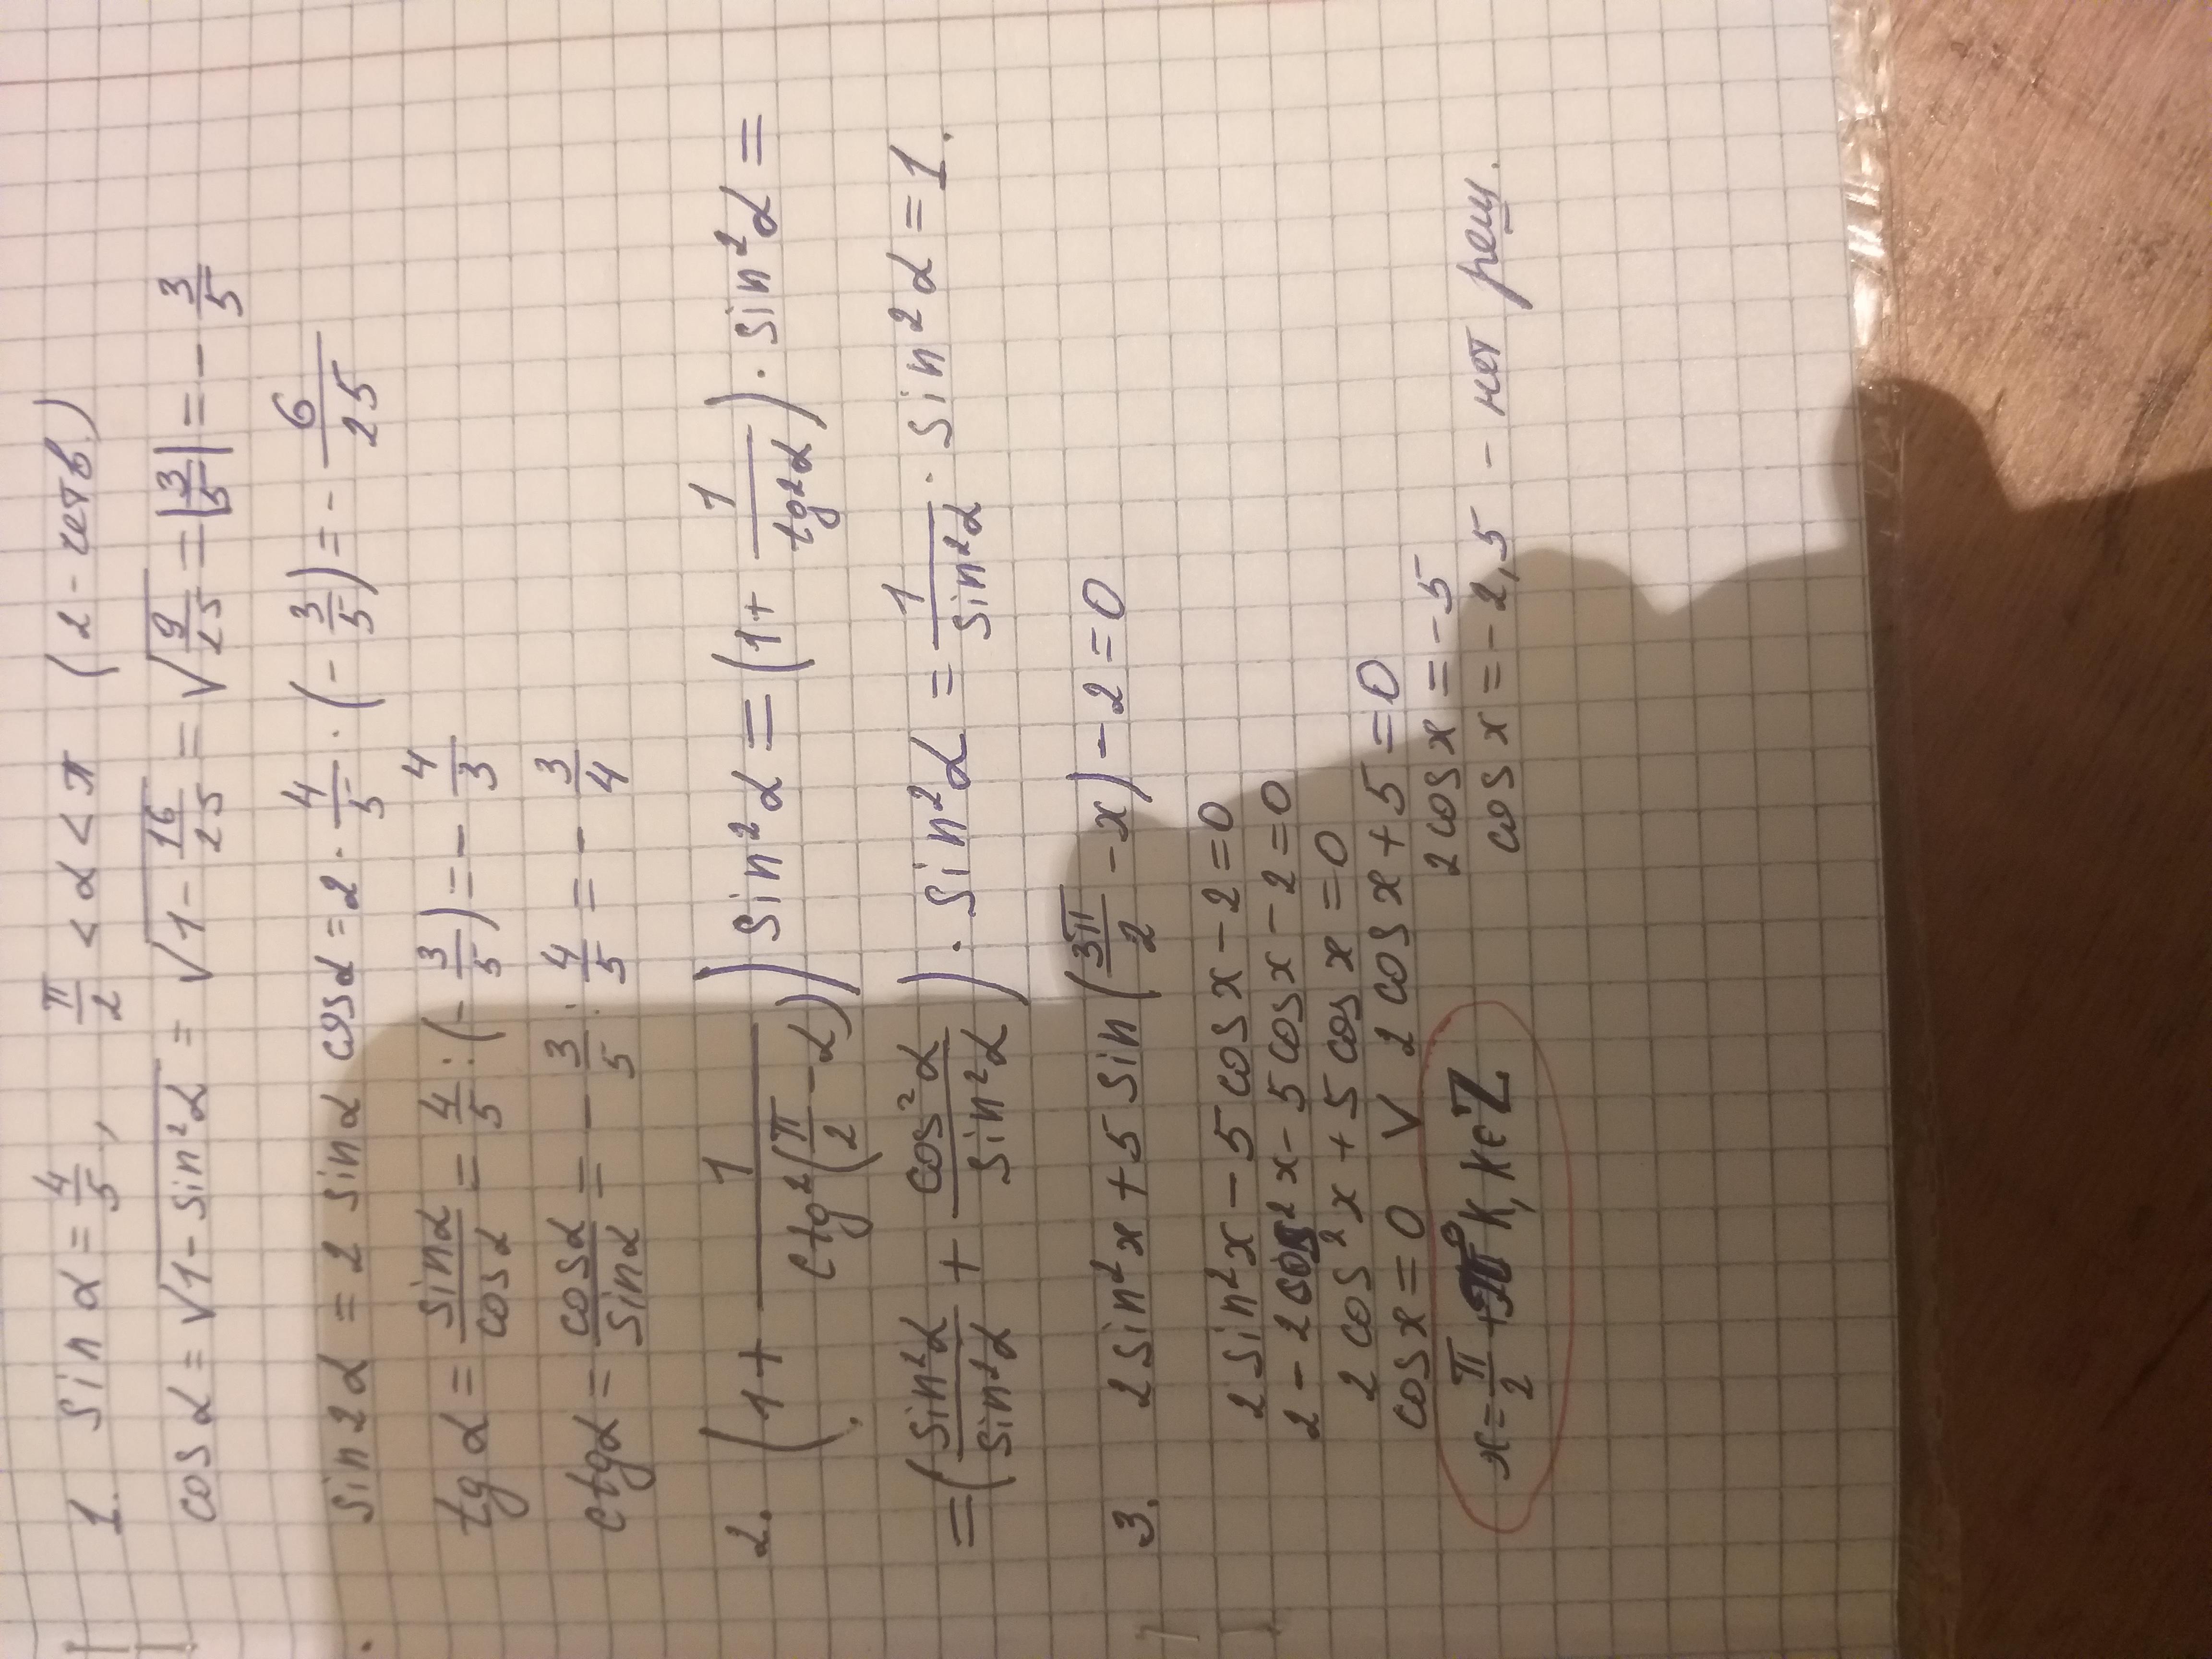 1. sin α = 4/5, π/2 < α < π (2-четв.)
cos α = √(1 - sin²α) = √(1 - 16/25) = √(9/25) = |3/5| = -3/5
sin 2α = 2 sin α cos α = 2 · 4/5 · (-3/5) = -6/25
tg α = sin α/cos α = 4/5 : (-3/5) = -4/3
ctg α = cos α/sin α = -3/5 : 4/5 = -3/4
2. (1 + 1/ctg²(π/2 - α)) sin²α = (1 + 1/tg²α) · sin²α =
= (sin²α/sin²α + cos²α/sin²α) · sin²α = 1/sin²α · sin²α = 1.
3. 2 sin²x + 5 sin(3π/2 - x) - 2 = 0
2 sin²x - 5 cos x - 2 = 0
2 - 2 cos²x - 5 cos x - 2 = 0
2 cos²x + 5 cos x = 0
cos x = 0 V 2 cos x + 5 = 0
2 cos x = -5
x = π/2 + πk, k∈Z
cos x = -2,5 - нет реш.